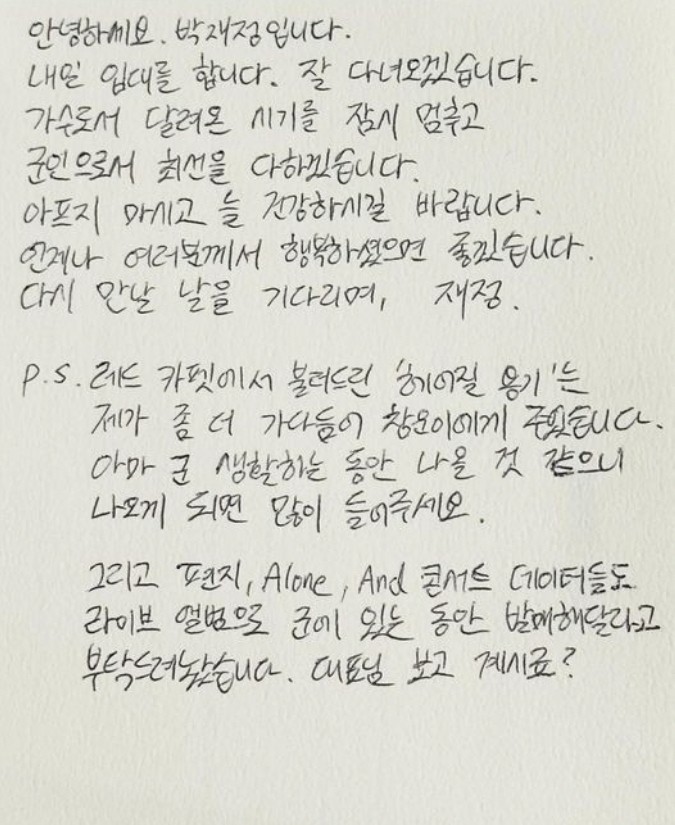 안녕하세요. 박재정입니다.
내일 입대를 합니다. 잘 다녀오겠습니다.
가수로서 달려온 시기를 잠시 멈추고
군인으로서 최선을 다하겠습니다.
아프지 마시고 늘 건강하시길 바랍니다.
언제나 여러분께서 행복하셨으면 좋겠습니다.
다시 만날 날을 기다리며, 재정.
P.S. 레드 카펫에서 불러드린 '헤어질 용기'는
제가 좀 더 가다듬어 창모이에게 주었습니다.
아마 군 생활하는 동안 나올 것 같으니
나오게 되면 많이 들어주세요.
그리고 편지, Alone, And 콘서트 데이터들도
라이브 앨범으로 군에 있는 동안 발매해달라고
부탁드려놨습니다. 대표님 보고 계시죠?